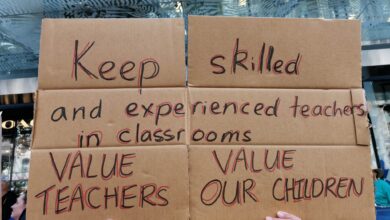 Keep skilled
and experienced teachers
in classrooms
VALUE TEACHERS
VALUE OUR CHILDREN